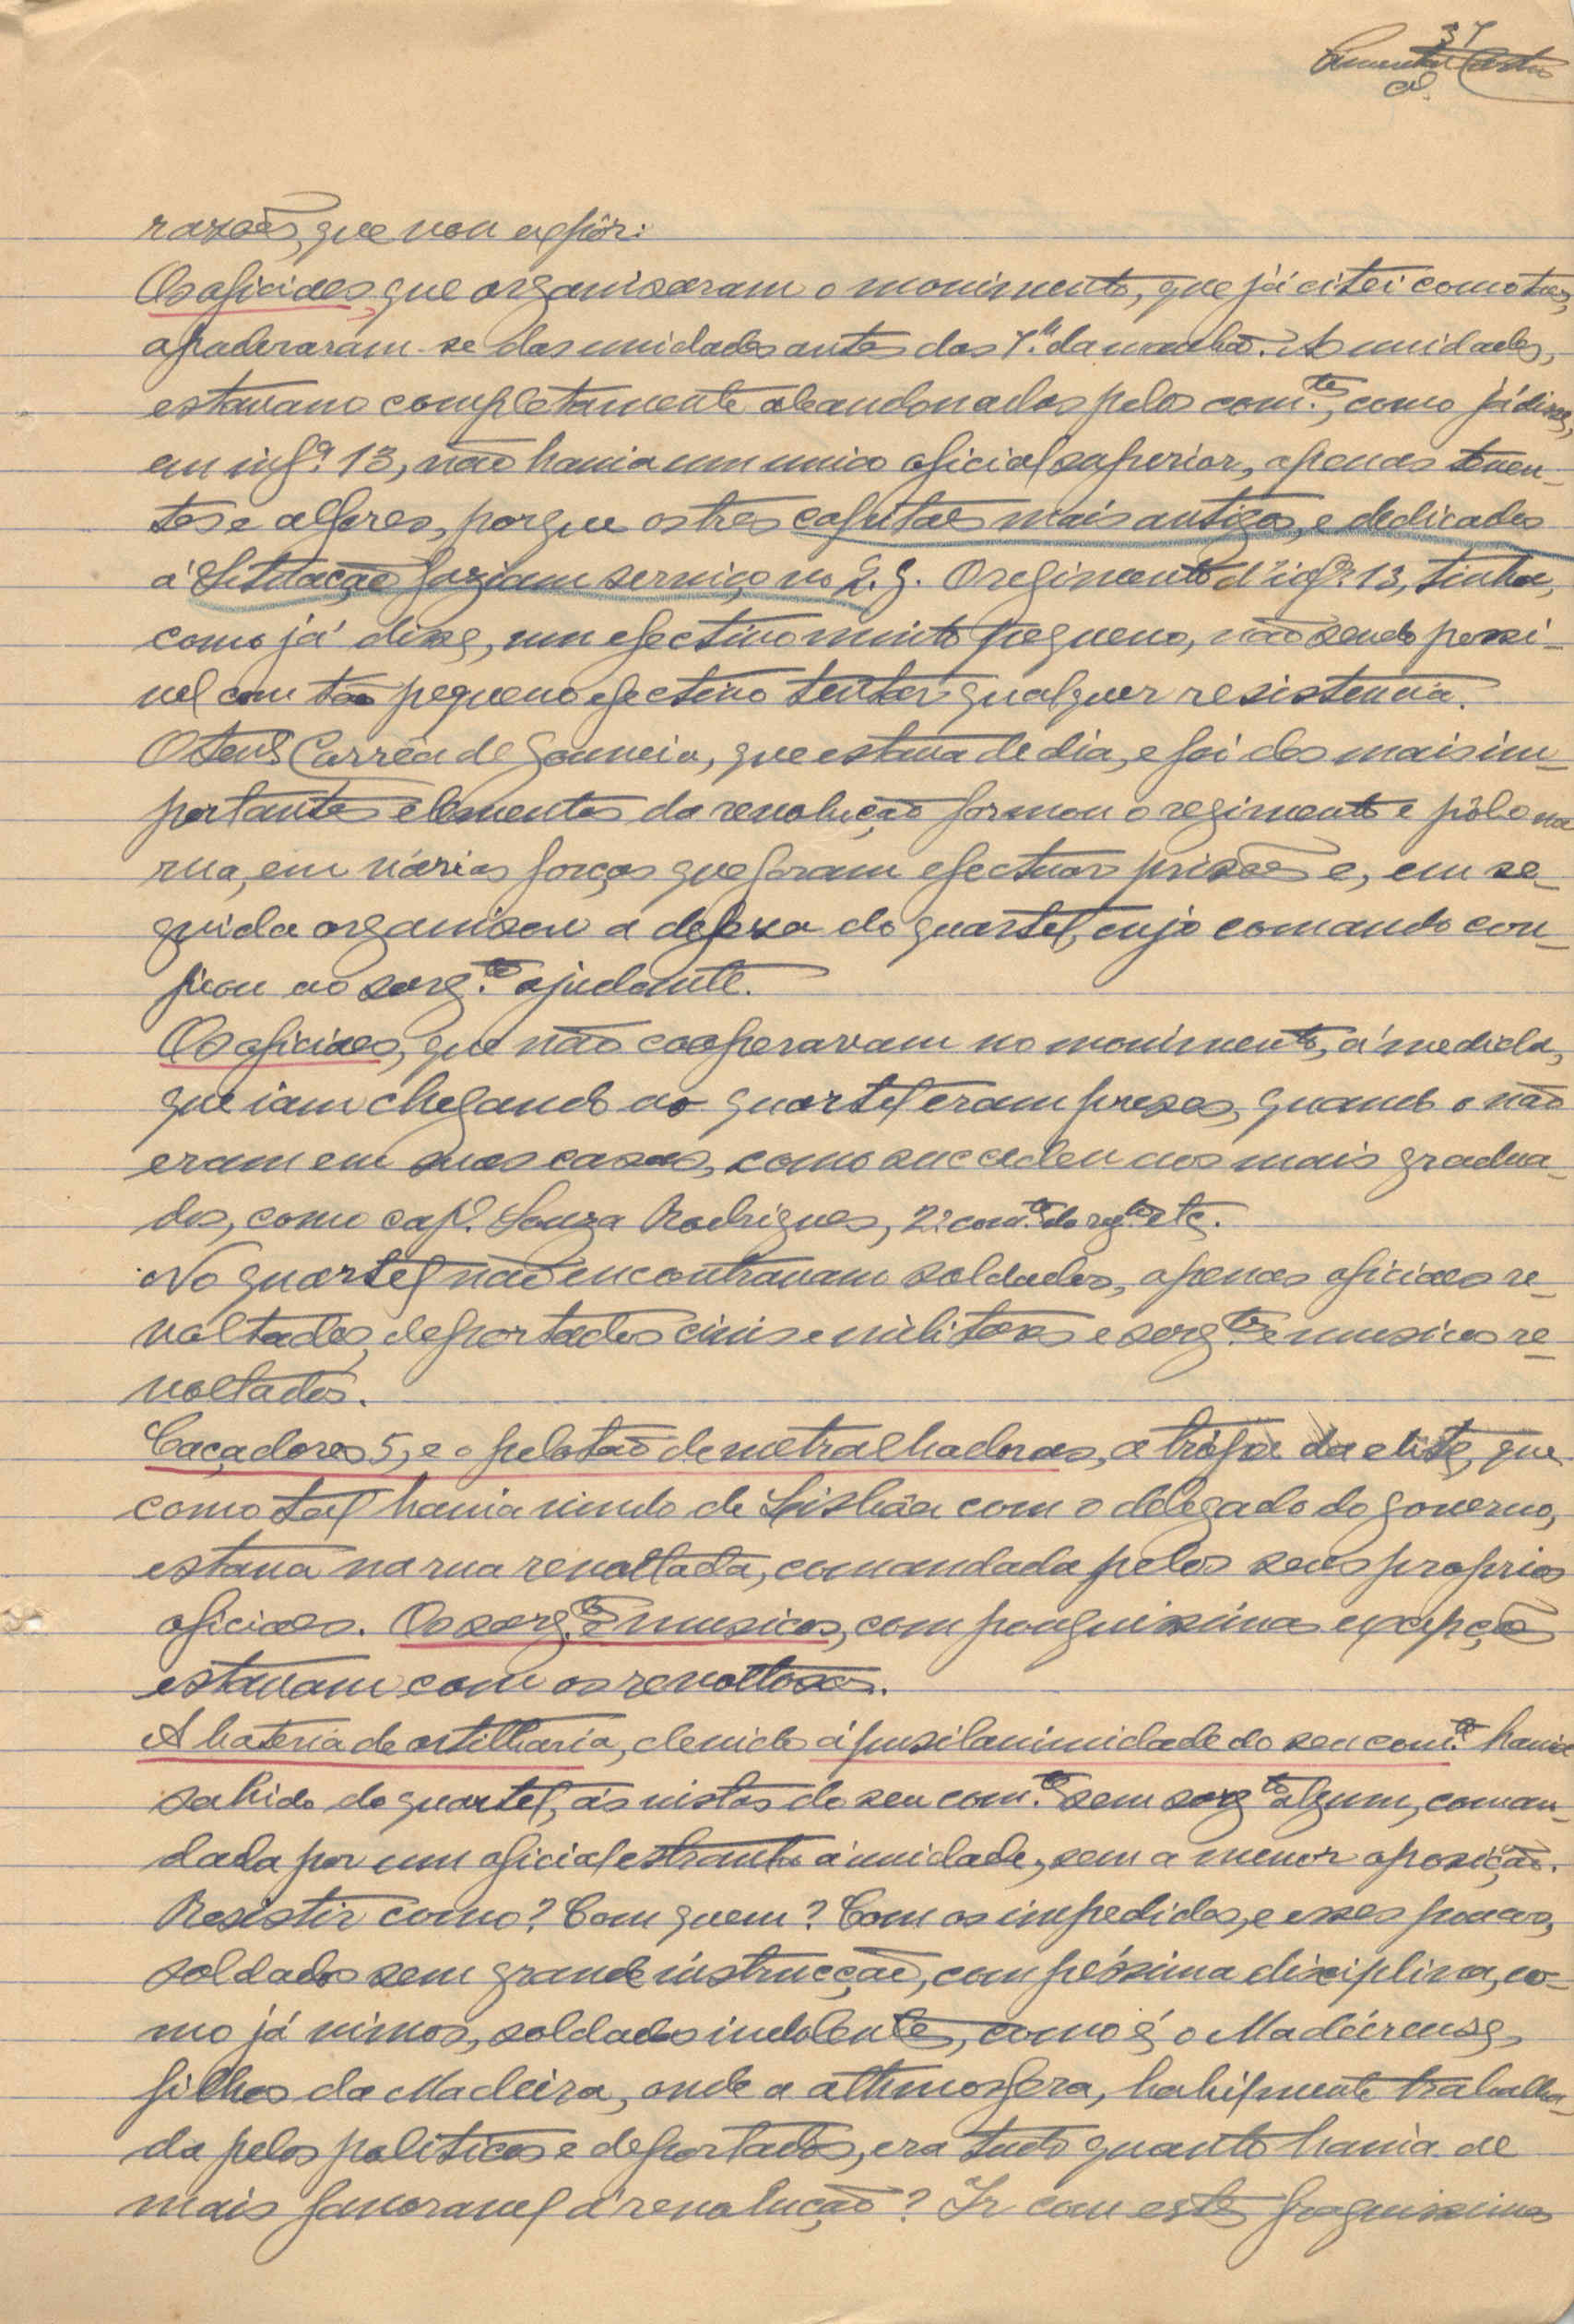 37
razões, que vou expôr:
Os oficiaes, que organisaram o movimento, que já citei como taes,
apaderaram-se das unidades antes das 7h. da manhã. As unidades,
estavam completamente abandonadas pelos com.tes, como já disse,
em inf.ª 13, não havia um unico oficial superior, apenas tenen-
tes e alferes, porque os tres capitães mais antigos, e dedicados
á Situação faziam serviço no Q. G. O regimento d'inf.ª 13, tinha,
como já disse, um efectivo muito pequeno, não sendo possi-
vel com tão pequeno efectivo tentar qualquer resistencia.
O ten.e Corrêa de Gouveia, que estava de dia, e foi dos mais im-
portantes elementos da revolução formou o regimento e pôlo na
rua, em várias forças que foram efectuar prisões e, em se-
guida organisou a defesa do quartel, cujo comando con-
fiou ao sarg.to ajudante.
Os oficiaes, que não cooperavam no movimento, á medida,
que iam chegando ao quartel eram presos, quando o não
eram em suas casas, como succedeu aos mais gradua-
dos, como cap.º Souza Rodrigues, 2º com.te do reg.to etc.
No quartel não encontravam soldados, apenas oficiaes re-
voltados, deportados civis e militares e sarg.tos e musicos re-
voltados.
Caçadores 5, e o pelotão de metralhadoras, a trópa da elite, que
como tal havia vindo de Lisbôa com o delegado do governo,
estava na rua revoltada, comandada pelos seus proprios
oficiaes. Os sarg.tos e musicos, com pouquissimas excepções
estavam com os revoltosos.
A bateria de artilharia, devido á pusilanimidade do seu com.te havia
sahido do quartel, ás vistas do seu com.te sem sarg.to algum, coman-
dada por um oficial estranho á unidade, sem a menor oposição.
Resistir como? Com quem? Com os impedidos, e esses poucos,
soldados sem grande instrucção, com péssima disciplina, co-
mo já vimos, soldados indolentes, como é o Madeirense,
filhos da Madeira, onde a athmosfera, habilmente trabalha-
da pelos politicos e deportados, era tudo quanto havia de
mais favoravel á revolução? Ir com estes pouquissimos